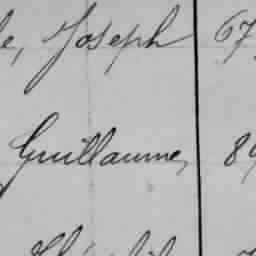 e, Joseph 67
Guillaume, 89